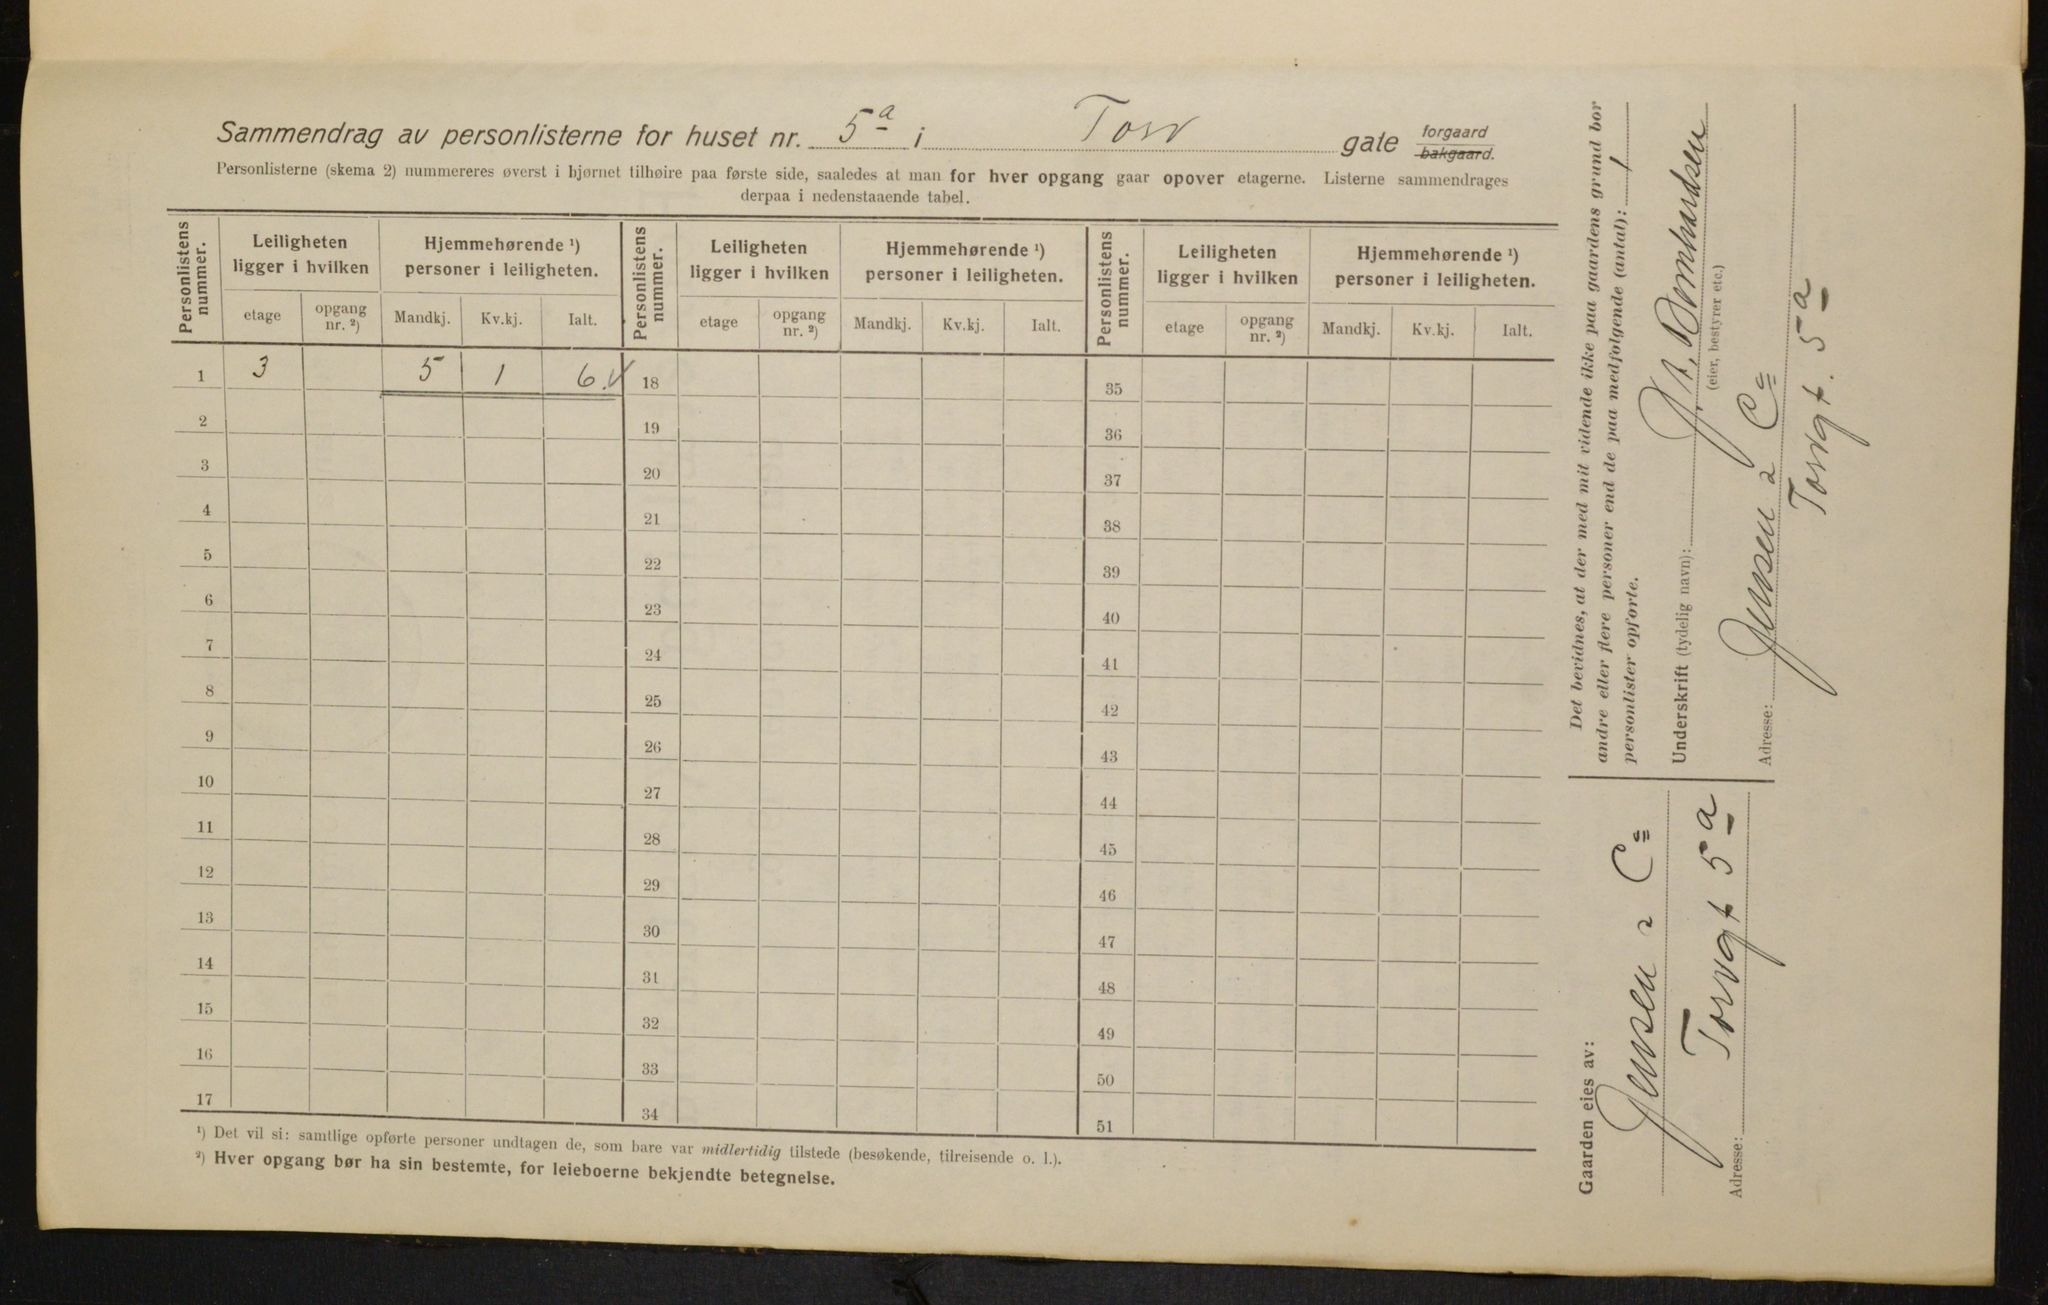 Sammendrag av personlisterne for huset nr. 5 a i Torv gate forgaard bakgaard.
Personlisterne (skema 2) nummereres øverst i hjørnet tilhøire paa første side, saaledes at man for hver opgang gaar opover etagerne. Listerne sammendrages
derpaa i nedenstaaende tabel.
Personlistens nummer. Leiligheten ligger i hvilken Hjemmehørende ¹) personer i leiligheten. Personlistens nummer. Leiligheten ligger i hvilken Hjemmehørende ¹) personer i leiligheten. Personlistens nummer. Leiligheten ligger i hvilken Hjemmehørende ¹) personer i leiligheten.
etage opgang nr. ²) Mandkj. Kv.kj. Ialt. etage opgang nr. ²) Mandkj. Kv.kj. Ialt. etage opgang nr. ²) Mandkj. Kv.kj. Ialt.
1 3 5 1 6 18 35
2 19 36
3 20 37
4 21 38
5 22 39
6 23 40
7 24 41
8 25 42
9 26 43
10 27 44
11 28 45
12 29 46
13 30 47
14 31 48
15 32 49
16 33 50
17 34 51
¹) Det vil si: samtlige opførte personer undtagen de, som bare var midlertidig tilstede (besøkende, tilreisende o. l.).
²) Hver opgang bør ha sin bestemte, for leieboerne bekjendte betegnelse.
Det bevidnes, at der med mit vidende ikke paa gaardens grund bor
andre eller flere personer end de paa medfølgende (antal): 1
personlister opførte.
Underskrift (tydelig navn):
(eier, bestyrer etc.)
Jensen & Co
Adresse:
Torvgt. 5 a
Gaarden eies av:
Jensen & Co
Torvgt 5 a
Adresse: